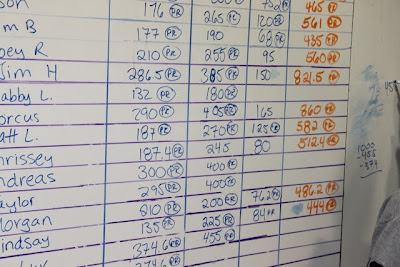 75.2 465 PR
son 176 PR 265 PR 120 PR 561 PR
m B 177 PR 190 68 PR 435 PR
oey R 210 PR 255 PR 95 560 PR
Jim H 286.5 PR 385 PR 150 821.5 PR
abby L. 132 PR 180 PR
orcus 290 PR 405 PR 165 860 PR
att L. 187 PR 270 PR 125 PR 582 PR
hrissey 187.4 PR 245 80 512.4 PR
ndreas 300 PR 400 PR
aylor 295 PR 400 PR
organ 210 PR 200 PR 76.2 PR 486.2 PR
indsay 135 PR 225 PR 84 PR 444 PR
374.6 PR 455 PR
374.6 PR
1000
-455
-374